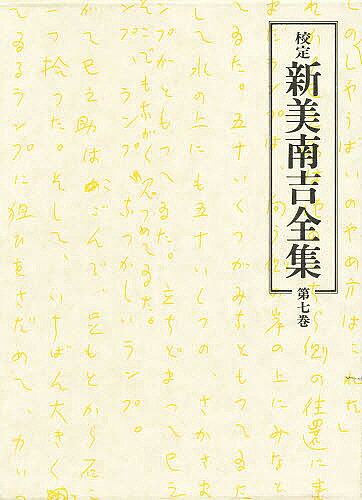 校定
新美南吉全集
第七巻
のしやうばいのやめ方は
側の往還に
岸の上にみな
てゐた。五十いくつがみなともつてゐた
して水の上にも五十いくつの、さかさま
ンプがともつてゐた。立ちどまつて巳之
そこでもながくみつめてゐた。
ランプ、なつかしいランプ。
がて巳之助はかがんで、足もとから石こ
一つ拾つた。そして、いちばん大きく
てゐるランプに狙ひをさだめて 力いつ